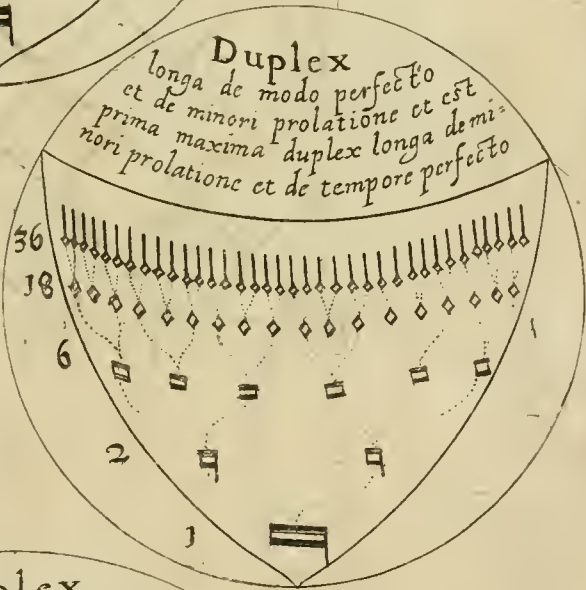 Duplex
longa de modo perfecto
et de minori prolatione et est
prima maxima duplex longa demi=
nori prolatione et de tempore perfecto
36
18
6
2
1
plex